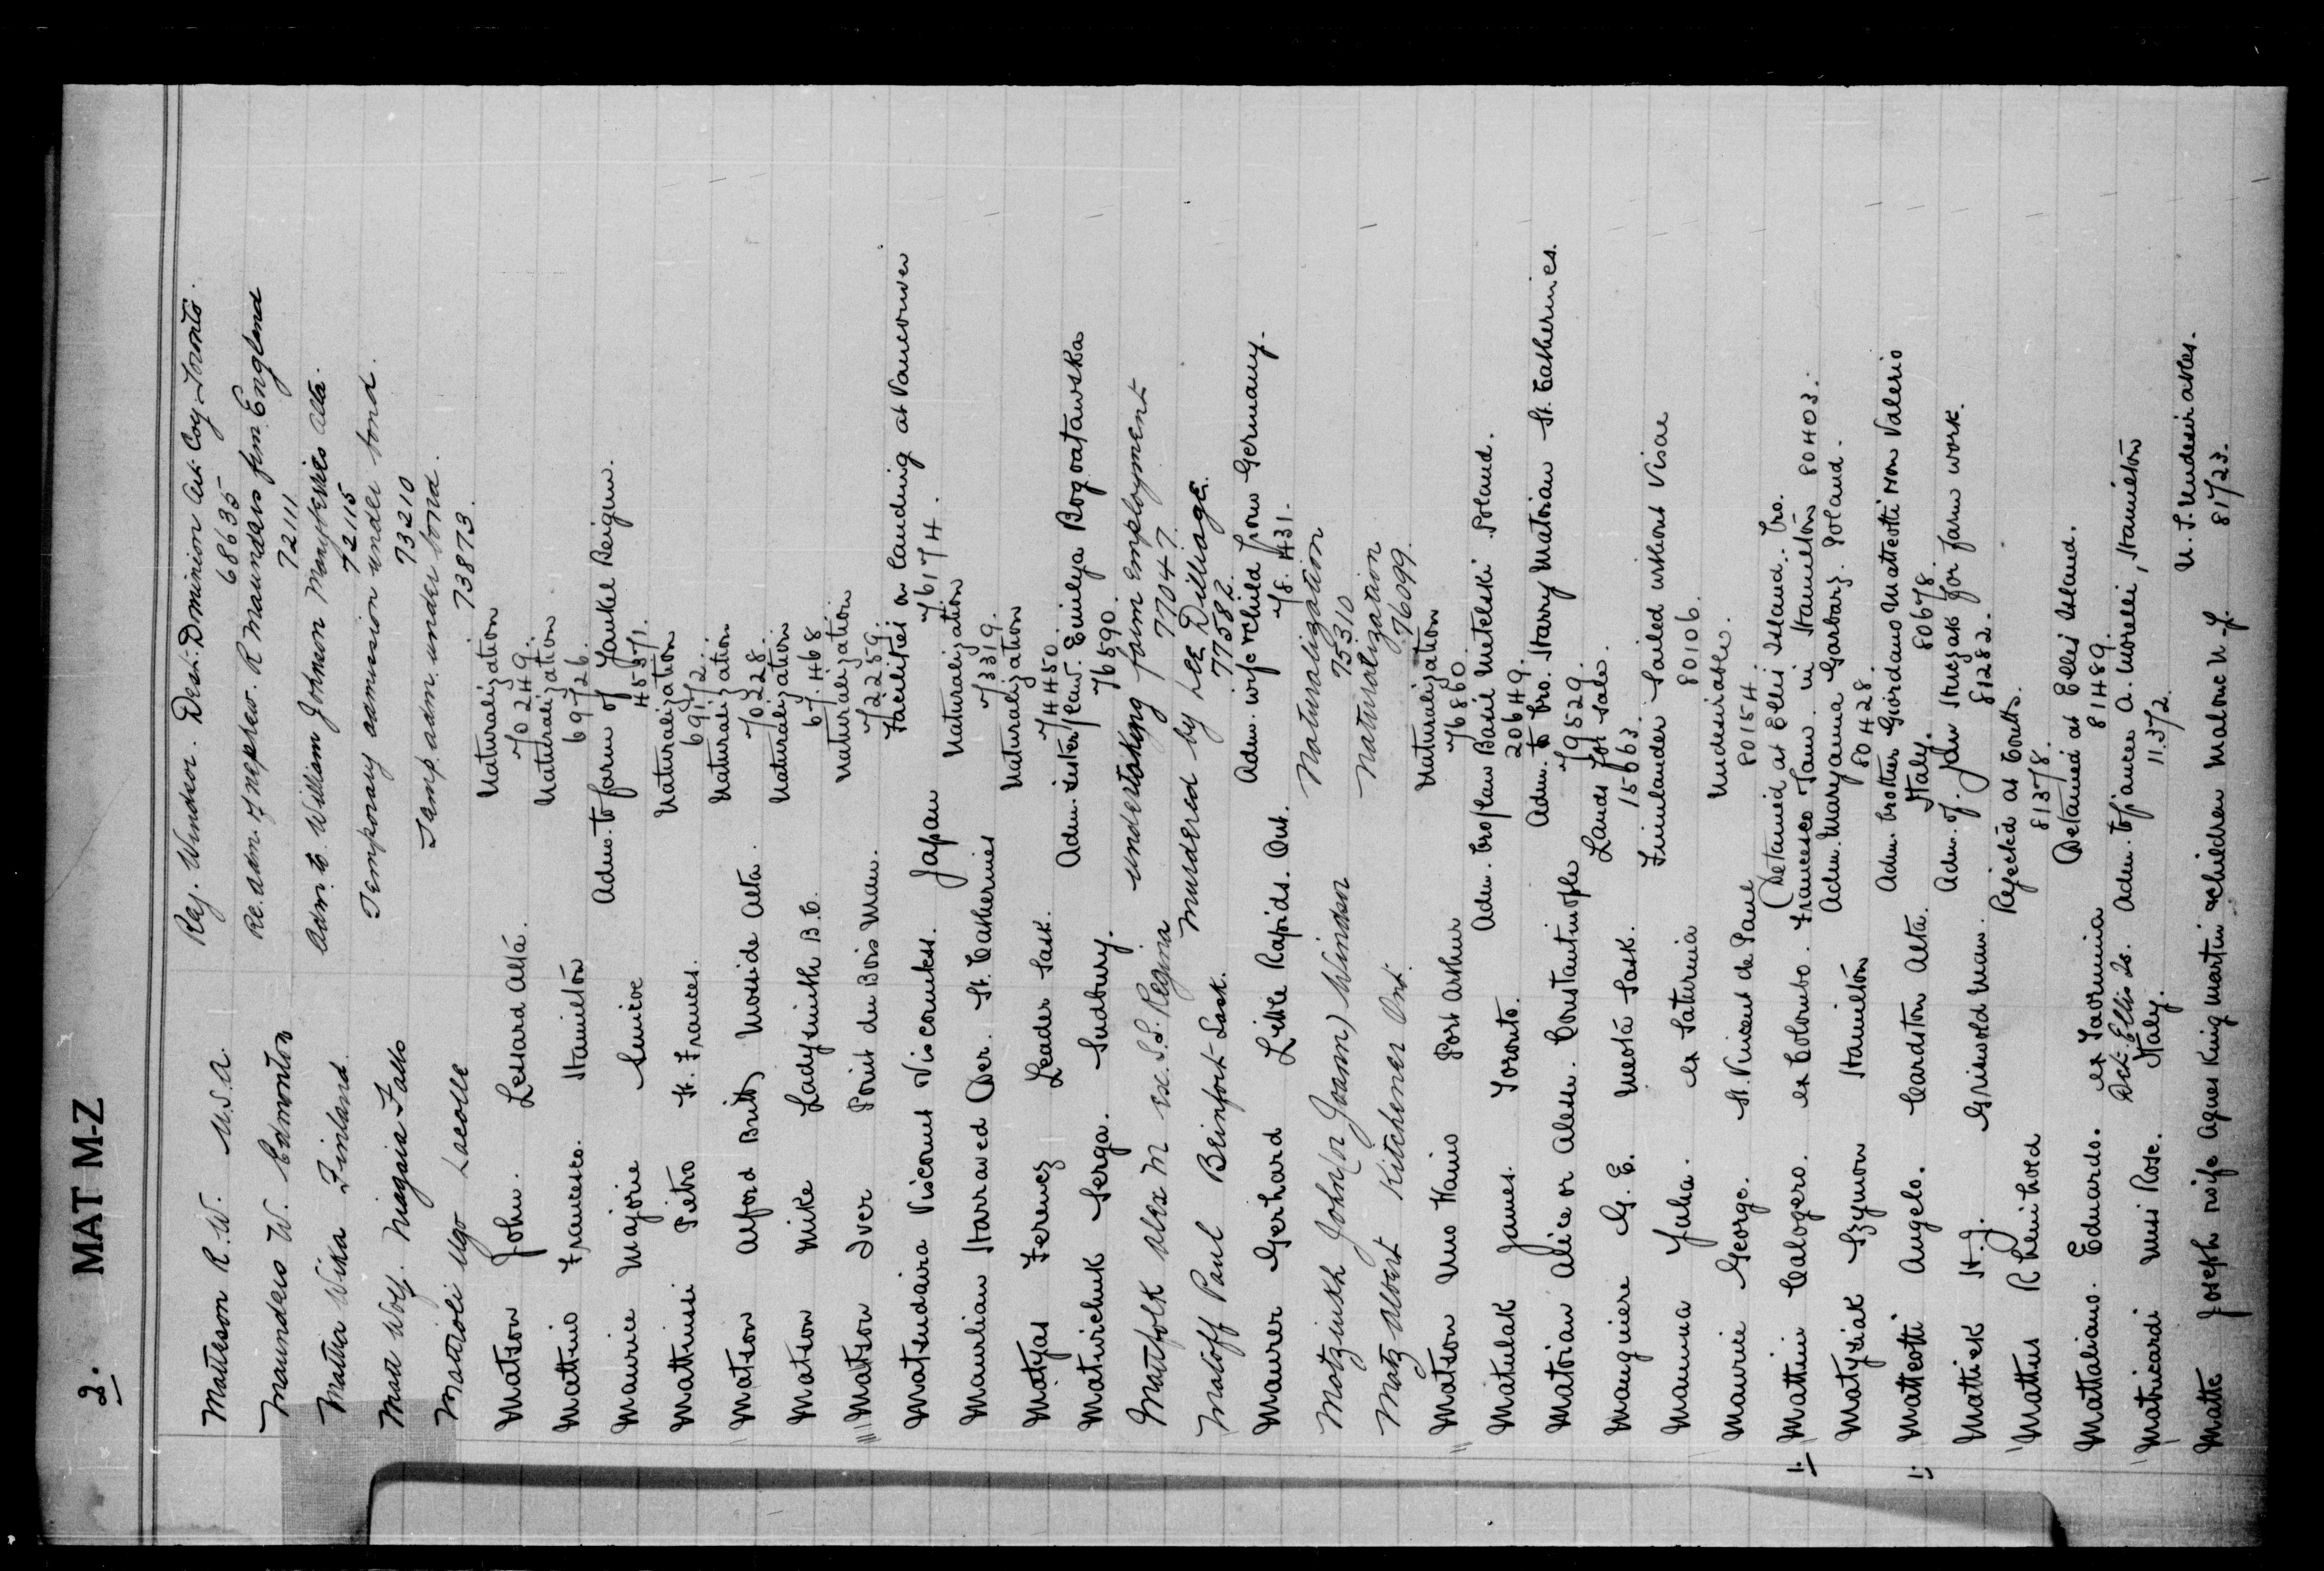 2. MAT M-Z
Mattson R.W. U.S.A. Rej. Windsor. Dest: Dominion Art Coy Toronto.
68635
Maunders W. Edmonton Re. adm. of nephew. R Maunders fm. England
72111
Mattla Wika Finland Adm. to William Johnson Alta.
72115
Matt Wolf. Niagara Falls Temporary admission under bond
73210
Mattioli Ugo Lacolle Temp. adm. under bond.
73873.
Matson John. Lessard Alta. Naturalization
70249.
Mattino Francesco. Hamilton Naturalization
69726.
Maurice Majorie Simcoe Adm. to farm of Yankel Reigen.
45571.
Mattinissi Pietro St. Frances. Naturalization
69172.
Matson Alford Britz Moside Alta. Naturalization
70228.
Matson Mike Ladysmith B.C. Naturalization
67.468
Matson Iver Point du Bois Man. Naturalization
72259.
Matsudaira Viscount Viscountess. Japan Facilities on landing at Vancouver
76174.
Maurlian Harraved Der. St. Catherines Naturalization
73319.
Matyas Ferencz Leader Sask. Naturalization
74450
Matwichuk Serga. Sudbury. Adm. sister/law. Emilya Bogoatawska
76590.
Mautfolk Alex M ex. S.S. Regina undertaking farm employment
77047.
Matoff Paul Beinfort Sask. Murdered by Lee Dilliage.
77582.
Maurer Gerhard Little Rapids. Ont. Adm. wife & child from Germany.
78.431.
Motzinkh John (or Joann) Windsor Naturalization
75310
Matz Albert Kitchener Ont. Naturalization
76099.
Matson Uno Haino Port Arthur Naturalization
76860.
Matulak James. Toronto. Adm. bro/law Basil Metelski Poland.
20649.
Matoian Alice or Alem. Constantinople Adm. to bro. Harry Matoian St. Catherines.
79529.
Mauginiere G. E. Meota Sask. Lands for sale.
15663.
Maunna Juha. ex Saturnia Finlander Sailed without Visae
80106.
Maurin George. St. Vincent de Paul Undesirable.
80154.
1. Mattini Calogero. ex Colombo. (Detained at Ellis Island. Bro.
Francesco Paul in Hamilton 80403.
Matysiak Szymon Hamilton Adm. Maryanna Garbarz. Poland.
80428.
1. Matteotti Angelo. Cardston Alta. Adm. brother Giordano Matteotti Non Valerio
Italy. 80678.
Mattiek H.J. Griswold Man. Adm. of. Jan for farm work.
81282.
Mattus Rejected at Coutts.
81378.
Mattaliano. Eduardo. ex Taormina Detained at Ellis Island.
81489.
Matricardi Miss Rose. Det. Ellis Is. Italy. Adm. to fiancee A. Morelli, Hamilton
11.372.
Matte Joseph wife Agnes King Martin & children Malone N.Y. U.S. Undesirables.
81723.